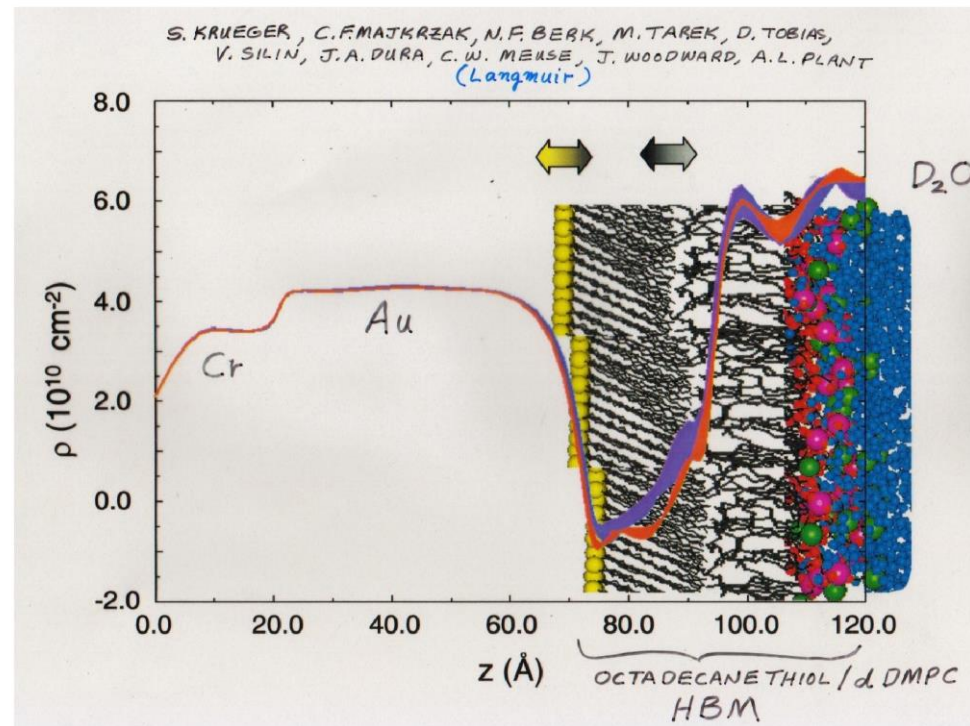 S. KRUEGER, C.F. MAJKRZAK, N.F. BERK, M. TAREK, D. TOBIAS,
V. SILIN, J.A. DURA, C.W. MEUSE, J. WOODWARD, A.L. PLANT
(Langmuir)
8.0
6.0
4.0
2.0
0.0
-2.0
ρ (10¹⁰ cm⁻²)
Cr
Au
D₂O
0.0 20.0 40.0 60.0 80.0 100.0 120.0
z (Å)
OCTADECANETHIOL / d DMPC
HBM